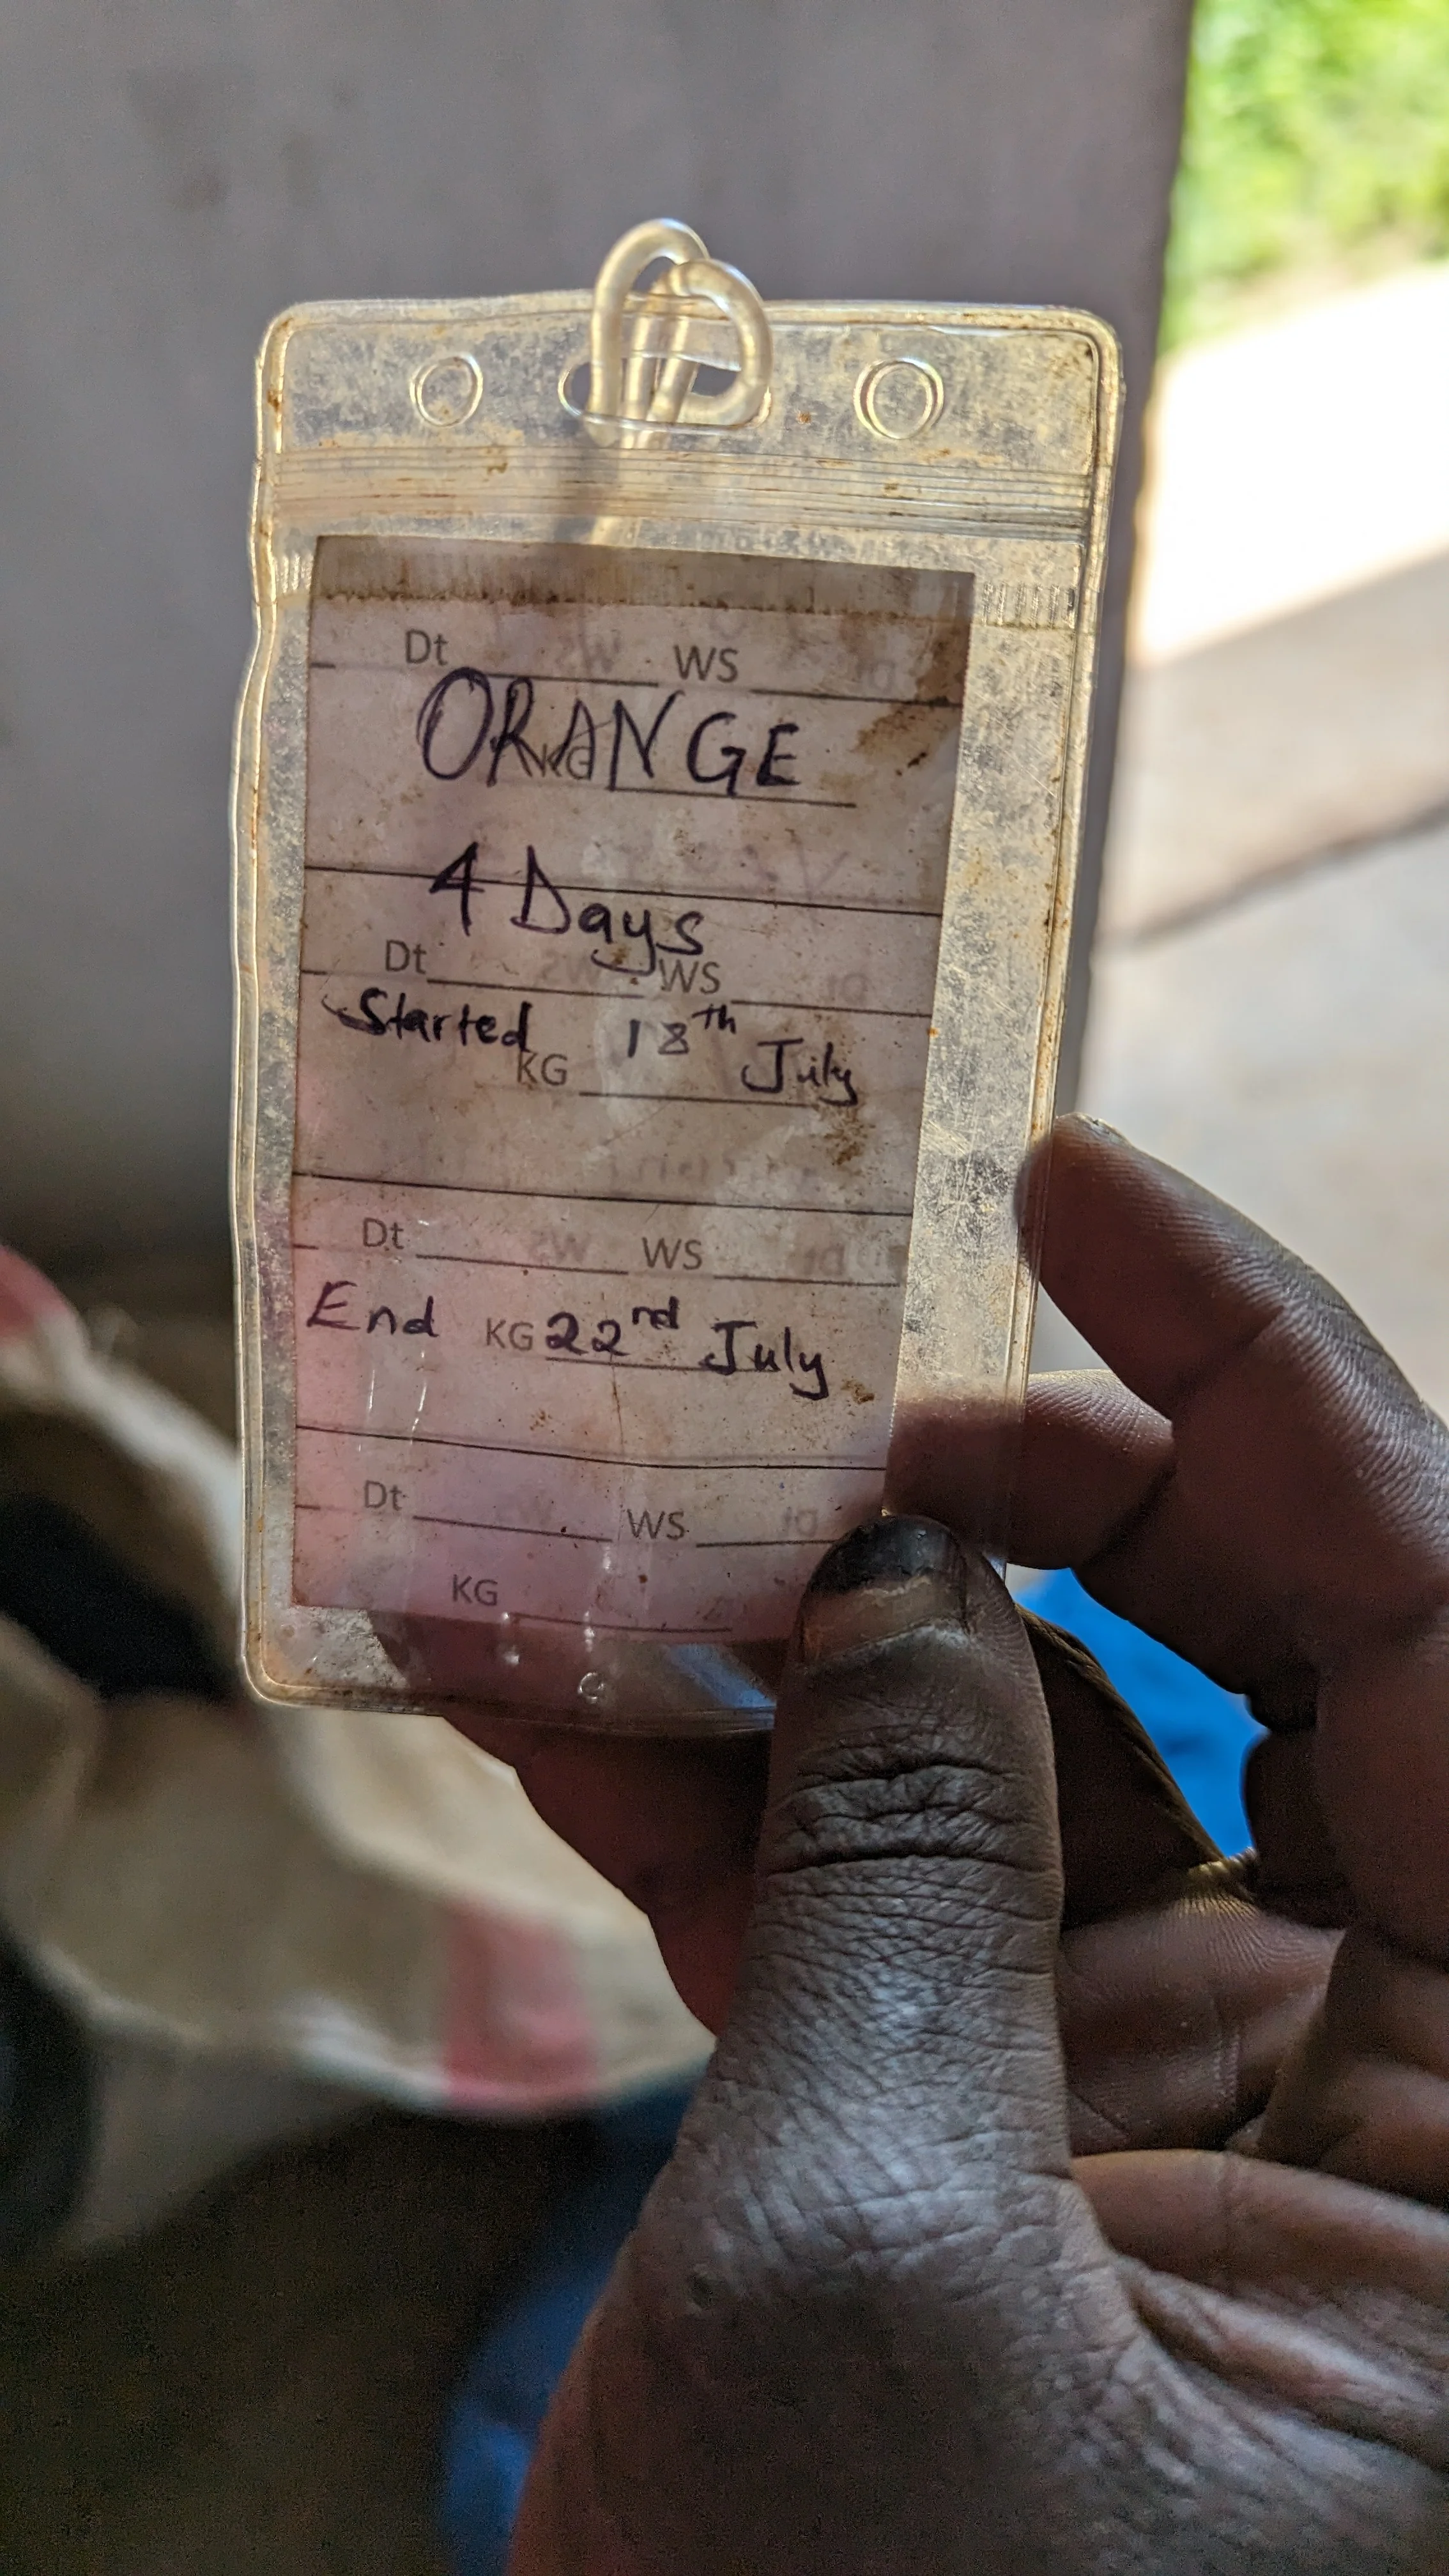 Dt WS
ORANGE
KG
4 Days
Dt WS
Started 18th July
KG
Dt WS
End KG 22nd July
Dt WS
KG